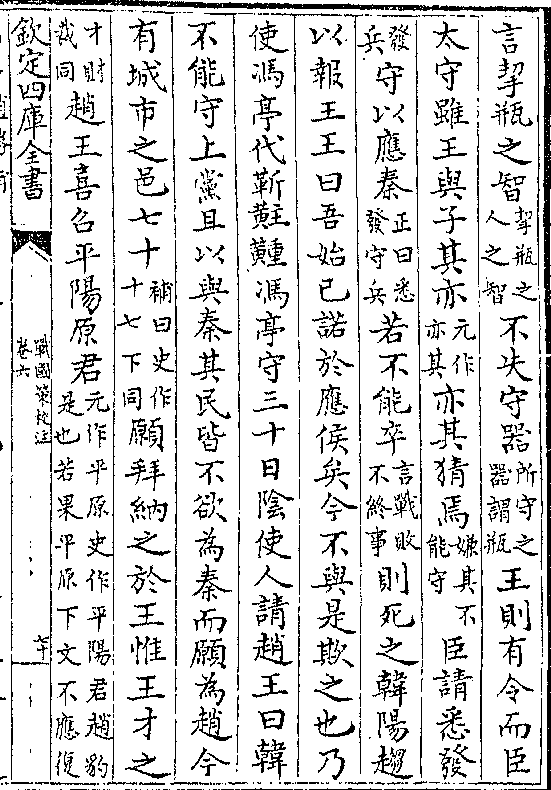 言挈瓶之智挈瓶之人之智不失守器所守之器謂瓶王則有令而臣
太守雖王與子其亦元作亦其亦其猜焉嫌其不能守臣請悉發
發兵守以應秦正曰悉發守兵若不能卒言戰敗不終事則死之韓陽趨
以報王王曰吾始已諾於應侯矣今不與是欺之也乃
使馮亭代靳黈馮亭守三十日陰使人請趙王曰韓
不能守上黨且以與秦其民皆不欲為秦而願為趙今
有城市之邑七十補曰史作十七下同願拜納之於王惟王才之
才財裁同趙王喜召平陽原君元作平原史作平陽君趙豹是也若果平原下文不應復
欽定四庫全書
戰國策校注
卷六